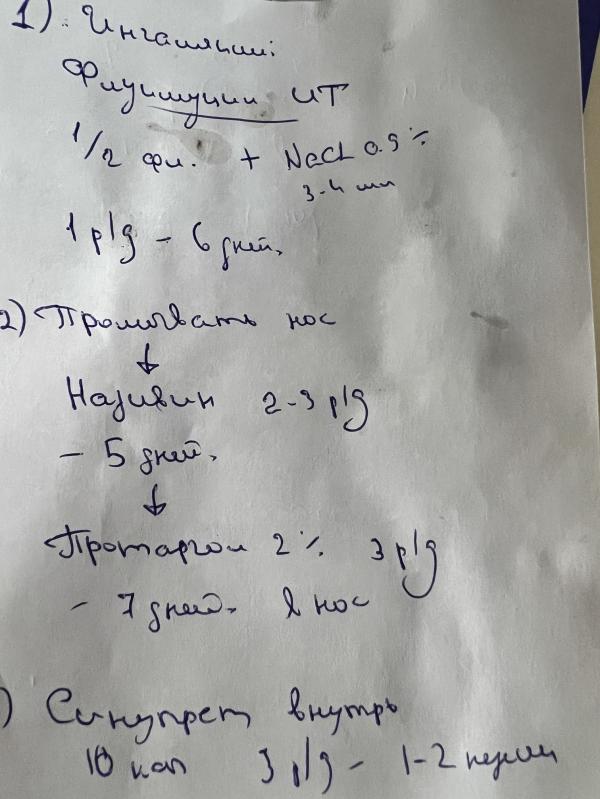 1) Ингаляции:
Флуимуцин ИТ
1/2 фл. + NaCl 0.9%
3-4 мл
1 р/д - 6 дней.
2) Промывать нос
↓
Називин 2-3 р/д
- 5 дней.
↓
Протаргол 2% 3 р/д
- 7 дней. в нос
) Синупрет внутрь
10 кап 3 р/д - 1-2 недели